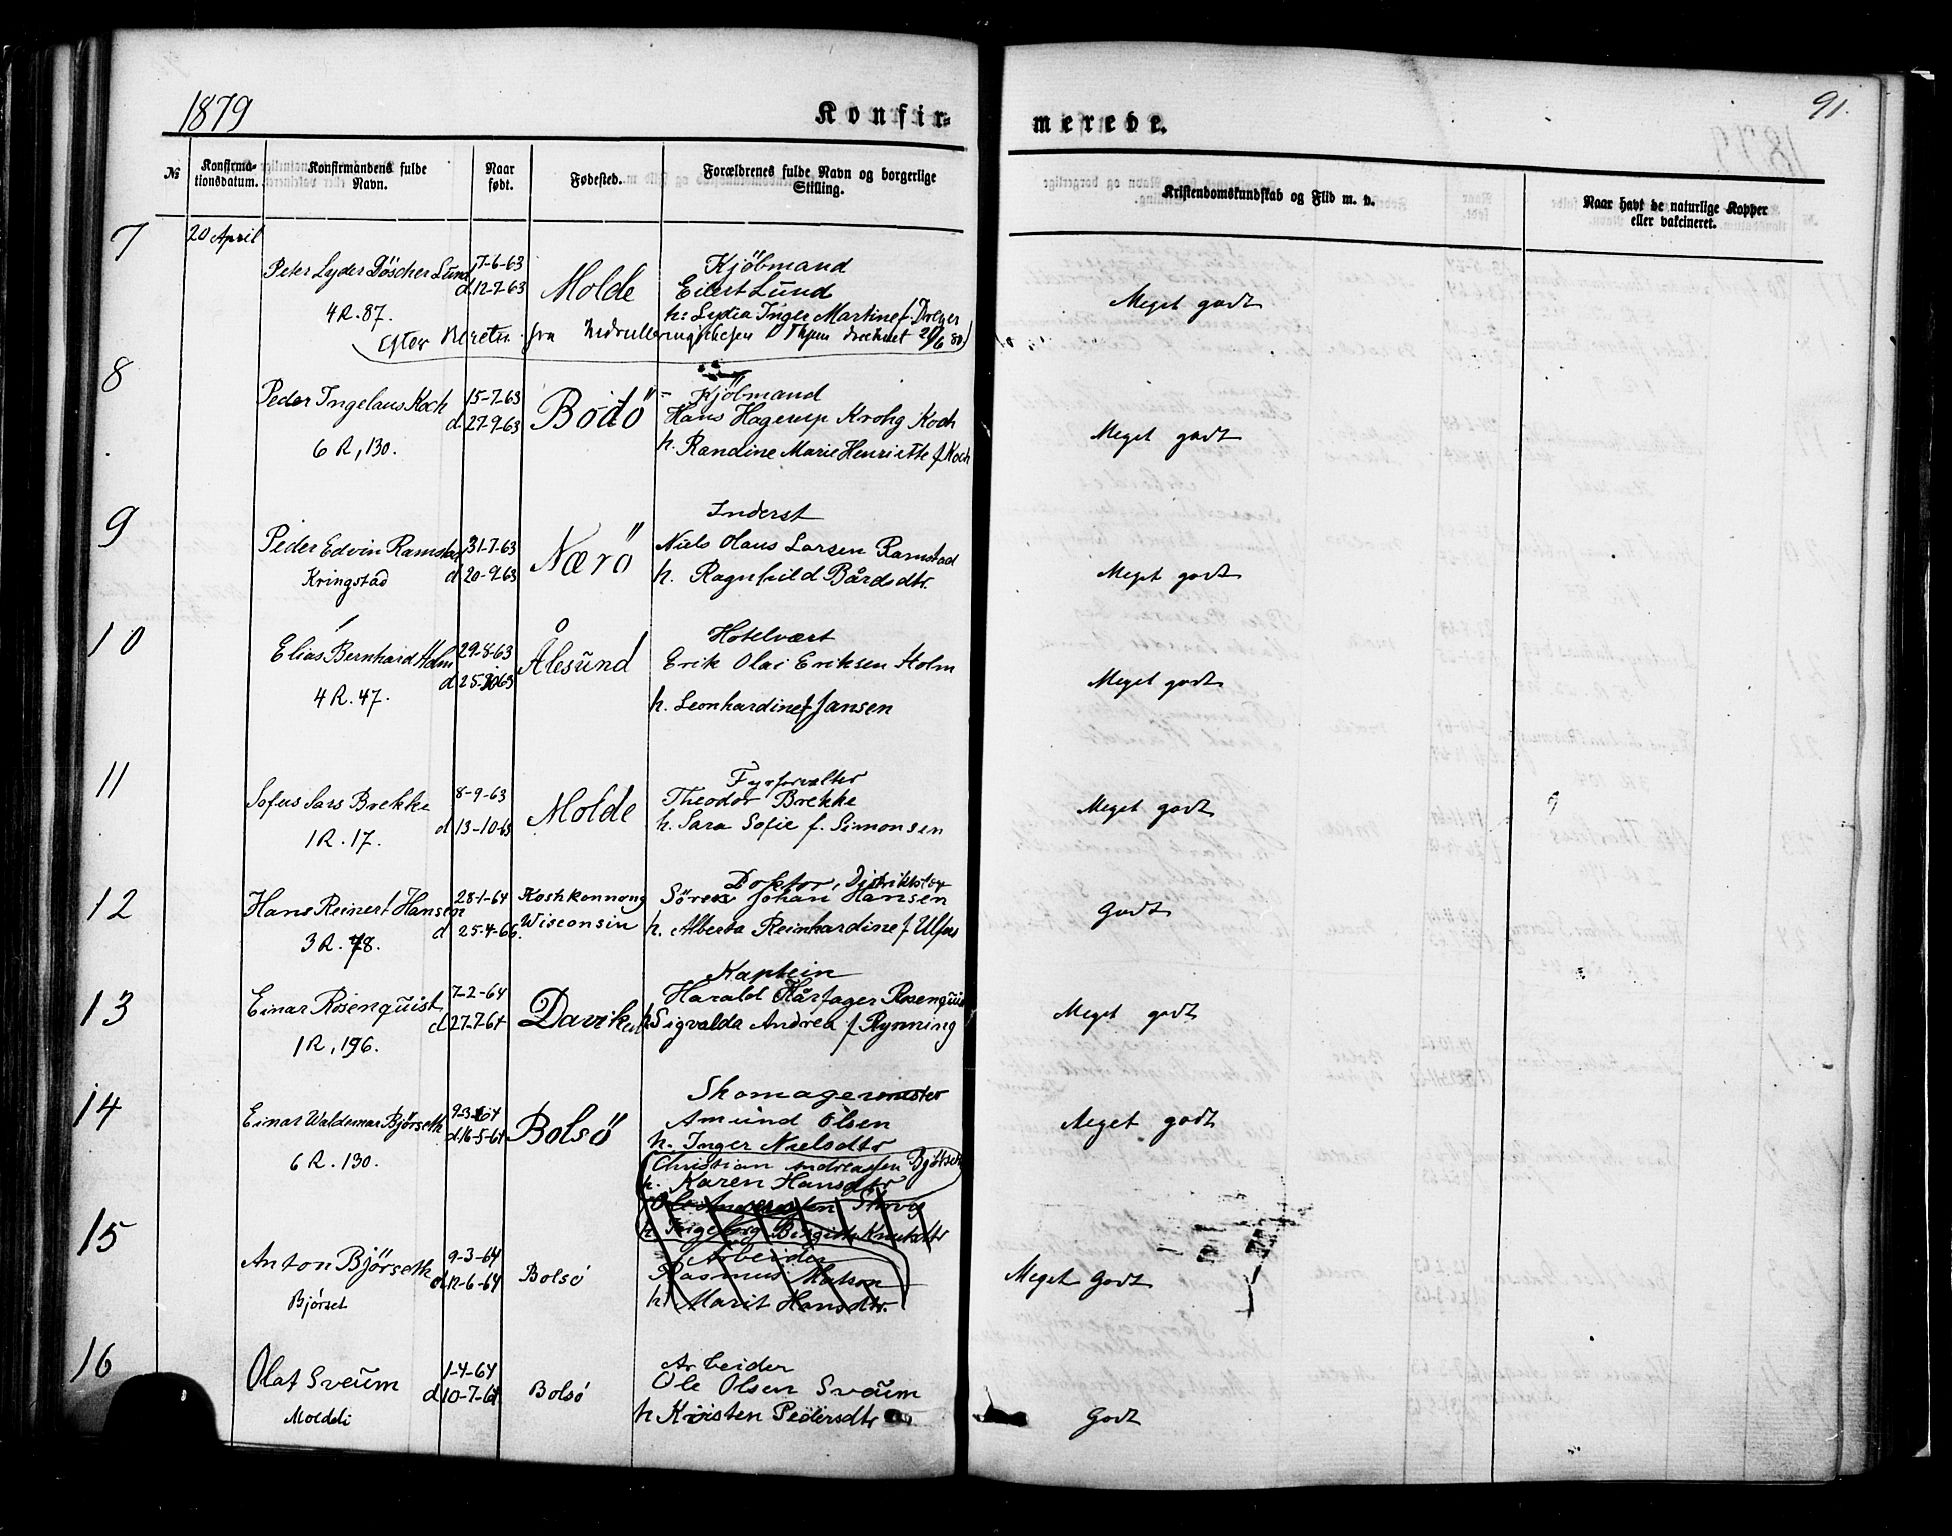 1879
Konfir-
merede.
91.
№
Konfirma-
tionsdatum.
Konfirmandens fulde
Navn.
Naar
født.
Fødested.
Forældrenes fulde Navn og borgerlige
Stilling.
Kristendomskundskab og Flid m. v.
Naar havt de naturlige Kopper
eller vakcineret.
7
20 April
Peter Lyder Döscher Lund
7-6-63
d. 12-7-63
Molde
Kjöbmand
Eilert Lund
h: Lydia Inger Martine f. Dreyer
4 R. 87.
Meget godt
Efter Beretn. fra
8
Peder Ingelaus Koch
15-7-63
d. 27-9-63
Bodö
Kjöbmand
Hans Hagerup Krohg Koch
h. Randine Marie Henriette f. Koch
6 R, 130.
Meget godt
9
Peder Edvin Ramstad
31-7-63
d 20-9-63
Nærö
Inderst
Niels Olaus Larsen Ramstad
h. Ragnhild Bårdsdtr.
Kringstad
Meget godt
10
Elias Bernhard Holm
29-8-63
d 25-10-63
Ålesund
Hotelvært
Erik Olai Eriksen Holm
h. Leonhardine f Jansen
4 R. 47.
Meget godt
11
Sofus Sars Brekke
8-9-63
d 13-10-63
Molde
Fyrforvalter
Theodor Brekke
h. Sara Sofie f. Simonsen
1 R. 17.
Meget godt
12
Hans Reinert Hansen
28-1-64
d 25-4-66.
Koshkonnong
Wisconsin
Doktor, Distriktslæ
Sören Johan Hansen
h. Alberta Reinhardine f
3 R. 78.
Godt
13
Einar Rosenquist
7-2-64
d 27-7-64
Daviken
Kaptein
Harald Hårfager Rosenquist
h Sigvalda Andrea f Rynning
1 R, 196.
Meget godt
14
Einar Waldemar Bjørseth
9-3-64
d. 16-5-64
Bolsö
Skomagermester
Amund Olsen
h. Inger Nielsdtr
Christian Andreassen Bjørset
h. Karen Hansdtr
6 R. 130.
Meget godt
h Ingeborg Birgitte Knutsdtr
15
Anton Bjørseth
9-3-64
d 12-6-64
Bolsö
Arbeider
Rasmus Matson
h. Marit Hansdtr.
Bjørset
Meget Godt
16
Olaf Sveum
1-4-64
d 10-7-64
Bolsö
Arbeider
Ole Olsen Sveum
h Kristen Pedersdtr
Moldeli
Godt